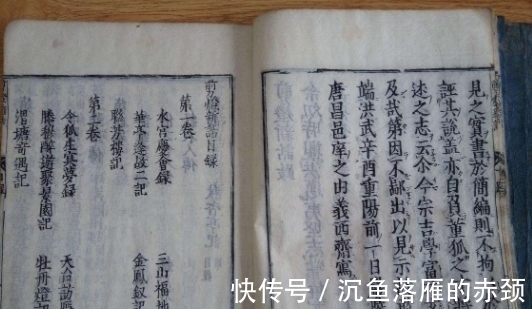 見之實書於簡編則不拘
誣其説蓋亦自負董狐之
述之志云余今宗吉學富
及哉第因不鄙出以見示
端洪武辛酉重陽前一日
唐昌邑庠之由義西齋寫
剪燈新話目録
第一卷
水宮慶會録 三山福地
華亭逢故人記 金鳳釵記
聯芳樓記
第二卷
令狐生冥夢録 天台訪
滕穆醉遊聚景園記 牡丹燈記
渭塘奇遇記
快传号 / 沉鱼落雁的赤颈